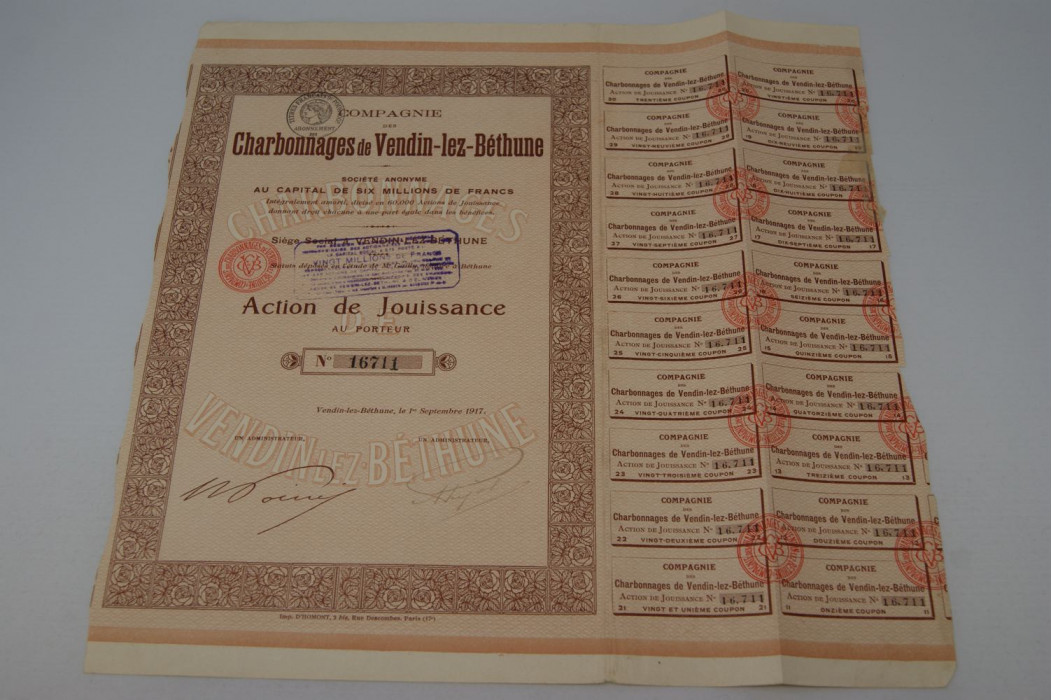 COMPAGNIE
DES
Charbonnages de Vendin-lez-Béthune
SOCIÉTÉ ANONYME
AU CAPITAL DE SIX MILLIONS DE FRANCS
Intégralement amorti, divisé en 60.000 Actions de Jouissance
donnant droit chacune à une part égale dans les bénéfices.
Siège Social à VENDIN-LEZ-BÉTHUNE
Statuts déposés en l'étude de Me à Béthune
VINGT MILLIONS DE FRANCS
Action de Jouissance
AU PORTEUR
No 16711
Vendin-lez-Béthune, le 1er Septembre 1917.
UN ADMINISTRATEUR, UN ADMINISTRATEUR,
CHARBONNAGES
DE
VENDIN LEZ BÉTHUNE
Imp. D'HOMONT, 2 bis, Rue Descombes, Paris (17e)
COMPAGNIE
DES
Charbonnages de Vendin-lez-Béthune
ACTION DE JOUISSANCE No 16.711
30 TRENTIÈME COUPON
COMPAGNIE
DES
Charbonnages de Vendin-lez-Béthune
ACTION DE JOUISSANCE No 16.711
29 VINGT-NEUVIÈME COUPON 29
COMPAGNIE
DES
Charbonnages de Vendin-lez-Béthune
ACTION DE JOUISSANCE No 16.711
28 VINGT-HUITIÈME COUPON 28
COMPAGNIE
DES
Charbonnages de Vendin-lez-Béthune
ACTION DE JOUISSANCE No 16.711
27 VINGT-SEPTIÈME COUPON 27
COMPAGNIE
DES
Charbonnages de Vendin-lez-Béthune
ACTION DE JOUISSANCE No 16.711
26 VINGT-SIXIÈME COUPON 26
COMPAGNIE
DES
Charbonnages de Vendin-lez-Béthune
ACTION DE JOUISSANCE No 16.711
25 VINGT-CINQUIÈME COUPON 25
COMPAGNIE
DES
Charbonnages de Vendin-lez-Béthune
ACTION DE JOUISSANCE No 16.711
24 VINGT-QUATRIÈME COUPON 24
COMPAGNIE
DES
Charbonnages de Vendin-lez-Béthune
ACTION DE JOUISSANCE No 16.711
23 VINGT-TROISIÈME COUPON 23
COMPAGNIE
DES
Charbonnages de Vendin-lez-Béthune
ACTION DE JOUISSANCE No 16.711
22 VINGT-DEUXIÈME COUPON 22
COMPAGNIE
DES
Charbonnages de Vendin-lez-Béthune
ACTION DE JOUISSANCE No 16.711
21 VINGT ET UNIÈME COUPON 21
COMPAGNIE
DES
Charbonnages de Vendin-lez-Béthune
ACTION DE JOUISSANCE No 16.711
VINGTIÈME COUPON
COMPAGNIE
DES
Charbonnages de Vendin-lez-Béthune
ACTION DE JOUISSANCE No 16.711
19 DIX-NEUVIÈME COUPON 19
COMPAGNIE
DES
Charbonnages de Vendin-lez-Béthune
ACTION DE JOUISSANCE No 16.711
18 DIX-HUITIÈME COUPON
COMPAGNIE
DES
Charbonnages de Vendin-lez-Béthune
ACTION DE JOUISSANCE No 16.711
17 DIX-SEPTIÈME COUPON 17
COMPAGNIE
DES
Charbonnages de Vendin-lez-Béthune
ACTION DE JOUISSANCE No 16.711
SEIZIÈME COUPON 16
COMPAGNIE
DES
Charbonnages de Vendin-lez-Béthune
ACTION DE JOUISSANCE No 16.711
15 QUINZIÈME COUPON 15
COMPAGNIE
DES
Charbonnages de Vendin-lez-Béthune
ACTION DE JOUISSANCE No 16.711
QUATORZIÈME COUPON 14
COMPAGNIE
DES
Charbonnages de Vendin-lez-Béthune
ACTION DE JOUISSANCE No 16.711
13 TREIZIÈME COUPON 13
COMPAGNIE
DES
Charbonnages de Vendin-lez-Béthune
ACTION DE JOUISSANCE No 16.711
DOUZIÈME COUPON
COMPAGNIE
DES
Charbonnages de Vendin-lez-Béthune
ACTION DE JOUISSANCE No 16.711
11 ONZIÈME COUPON 11